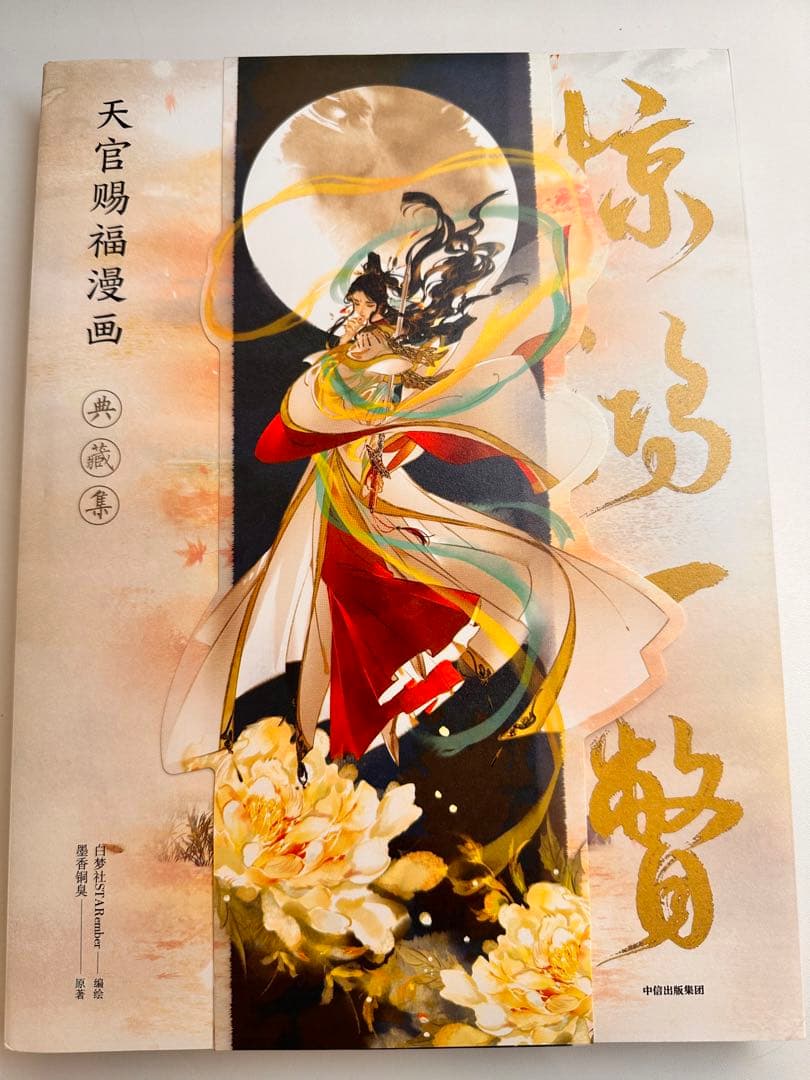 惊鸿一瞥
天官赐福漫画
典藏集
白梦社STARember——编绘
墨香铜臭——原著
中信出版集团